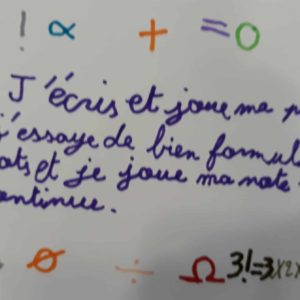 ! ∝ + = 0
J'écris et joue ma
j'essaye de bien
et je joue ma note
ontinue.
Ø ÷ Ω 3!=3x2x